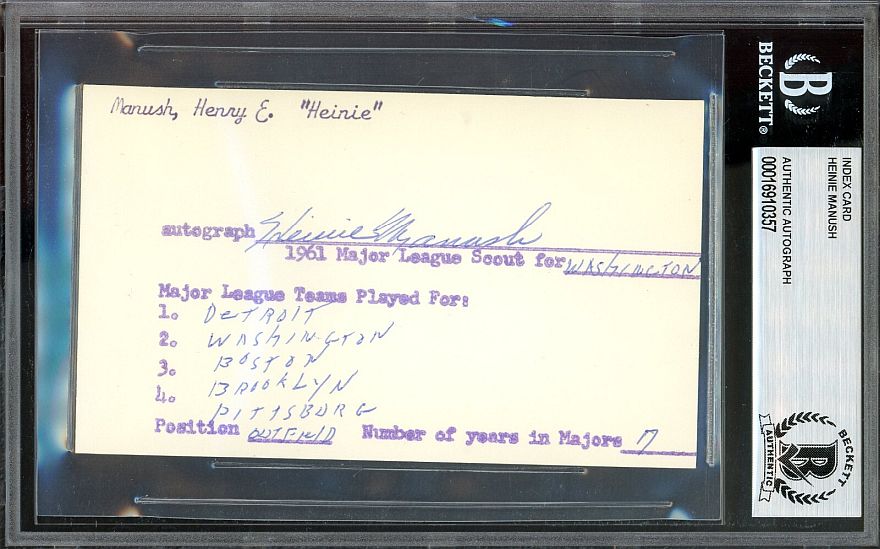 Manush, Henry E. "Heinie"
autograph Heinie Manush
1961 Major League Scout for WASHINGTON
Major League Teams Played For:
1. DETROIT
2. WASHINGTON
3. BOSTON
4. BROOKLYN
PITTSBURG
Position OUTFIELD Number of years in Majors 17
BECKETT®
B
INDEX CARD
HEINIE MANUSH
AUTHENTIC AUTOGRAPH
00016910357
BECKETT
AUTHENTIC